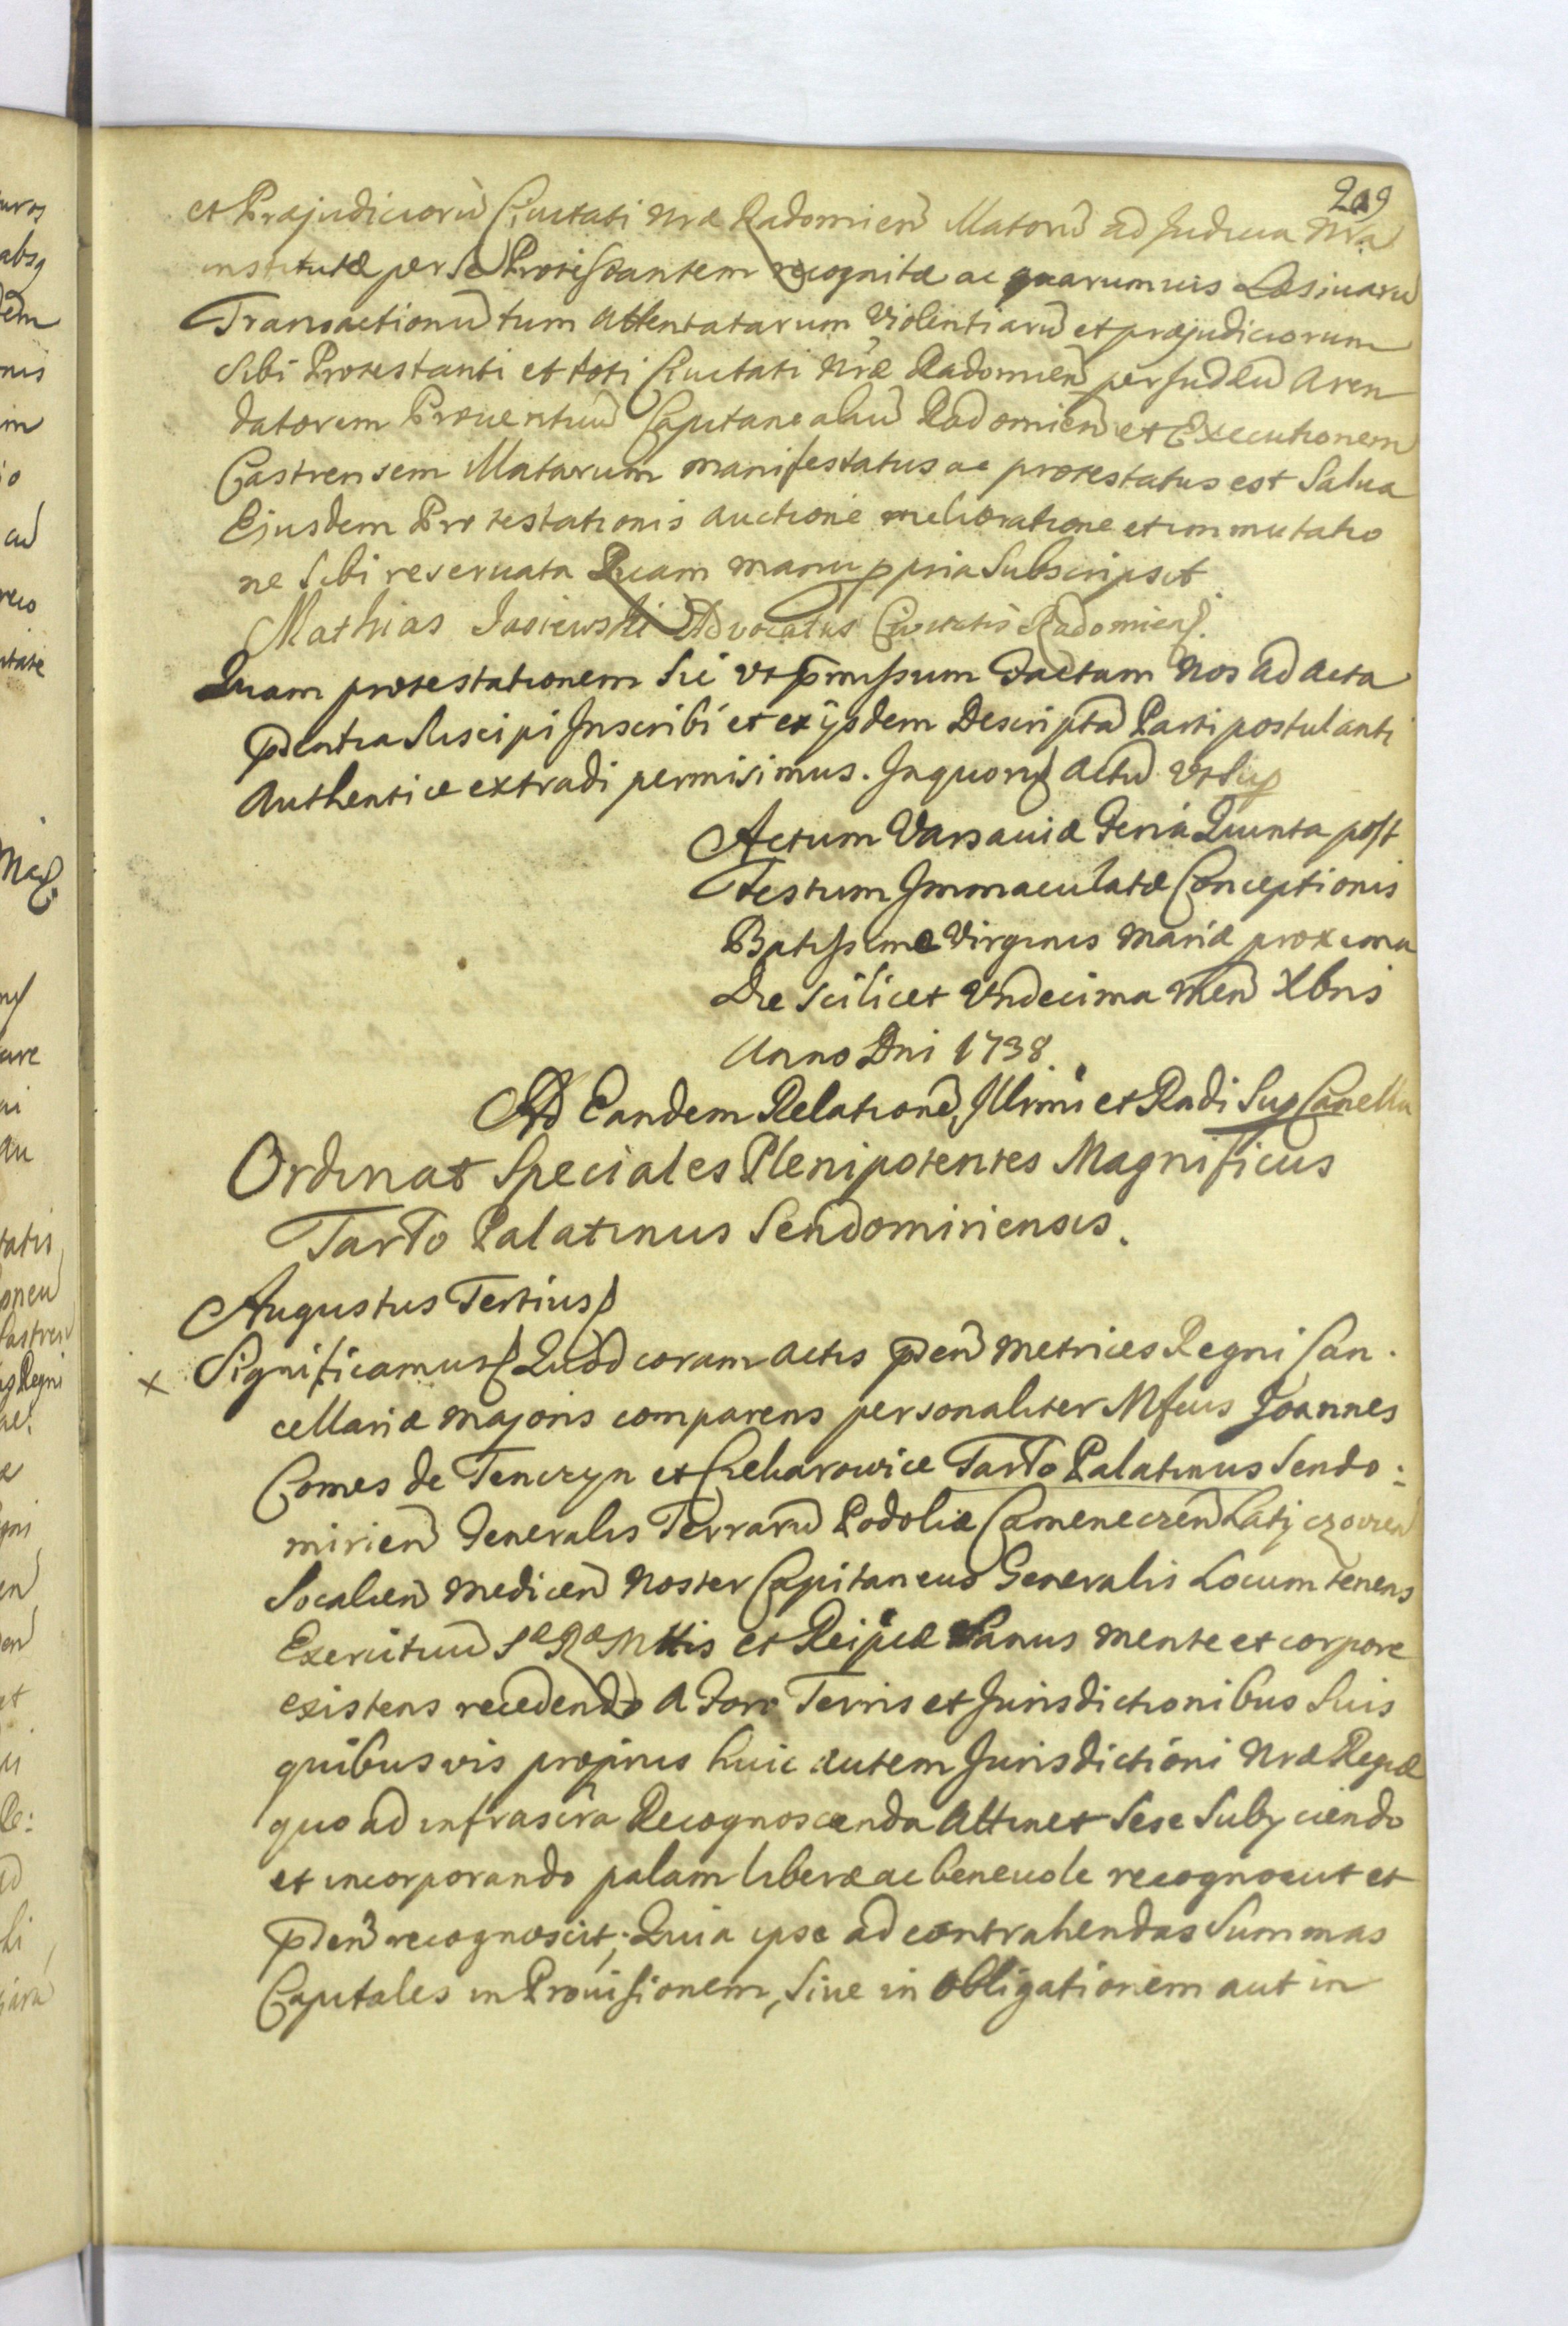 209
et Præjudiciorũ Civitati Nræ Radomien̄ Illatorũ ad Judicia Nra
institutæ per se Protestantem recognitæ ac quarumvis Læsivarũ
Transactionũ tum Attentatarum Violentiarũ et præjudiciorum
Sibi Protestanti et toti Civitati Nræ Radomien̄ per Aren
datorem Proventuũ Capitanealiũ Radomien̄ et Executionem
Castrensem Illatarum manifestatus ac protestatus est Salva
Ejusdem Protestationis auctione melioratione et immutatio
ne Sibi reservata Quam manu ppria Subscripsit
Mathias Jasiewski Advocatus Civitatis Radomien̄.
Quam protestationem Sic ut pmissum factam Nos ad Acta
pdentia Suscipi Inscribi et ex ijsdem Descripta Parti postulanti
Authentice extradi permisimus. In quorũ Actũ Ut Sup
Actum Varsaviæ Feria Quinta post
Festum Immaculatæ Conceptionis
Btissimæ Virginis Mariæ proxima
Die Scilicet Undecima Men̄ Xbris
Anno Dni 1738.
Ad Eandem Relationē Illrmi et Rndi Sup
Ordinat Speciales Plenipotentes Magnificus
Tarło Palatinus Sendomiriensis.
Augustus Tertius
x Significamus Quod coram Actis pden̄ Metrices Regni Can.
cellariæ Majoris comparens personaliter Mfcus Joannes
Comes de Tenczyn et Czekarowice Tarło Palatinus Sendo:
mirien̄ Generalis Terrarũ Podoliæ Camenecen̄ Latyczovien̄
Socalien̄ Medicen̄ Noster Capitaneus Generalis Locumtenens
Exercituũ Sæ Ræ Mttis et Reipcæ Sanus mente et corpore
existens recedendo a Foro Terris et Jurisdictionibus Suis
quibusvis propriis huic autem Jurisdictioni Nræ Regiæ
quo ad infrascra Recognoscenda Attinet Sese Subjiciendo
et incorporando palam libere ac benevole recognovit et
pden̄ recognoscit; Quia ipse ad contrahendas Summas
Capitales in Provisionem, Sive in Obligationem aut in